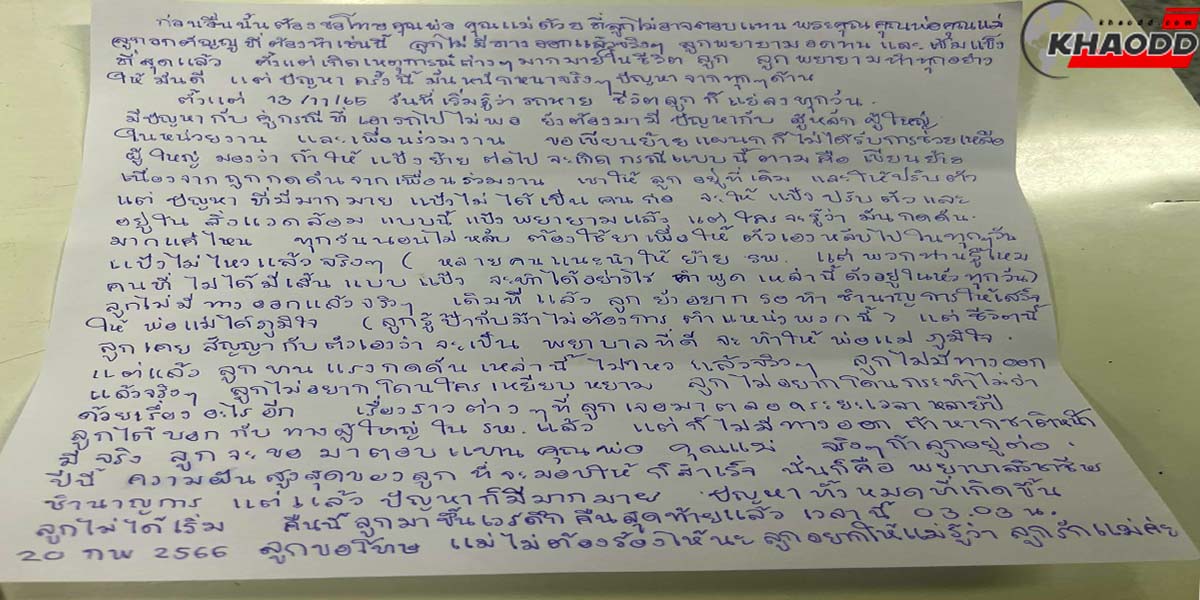 khaodd.com
KHAODD
ก่อนอื่นนั้นต้องขอโทษคุณพ่อ คุณแม่ด้วย ที่ลูกไม่อาจตอบแทน พระคุณคุณพ่อคุณแม่
ลูกอกตัญญู ที่ต้องทำเช่นนี้ ลูกไม่มีทางออกแล้วจริงๆ ลูกพยายามอดทน และเข้มแข็ง
ที่สุดแล้ว ตั้งแต่เกิดเหตุการณ์ต่างๆมากมายในชีวิต ลูก ลูกพยายามทำทุกอย่าง
ให้มันดี แต่ปัญหา ครั้งนี้ มันหนักหนาจริงๆ ปัญหาจากทุกๆด้าน
ตั้งแต่ 13/11/65 วันที่เริ่มรู้ว่ารถหาย ชีวิตลูกก็แย่ลงทุกวัน.
มีปัญหากับ คู่กรณีที่เอารถไปไม่พอ ยังต้องมามีปัญหากับ ผู้หลักผู้ใหญ่
ในหน่วยงาน และเพื่อนร่วมงาน ขอเขียนย้ายแผนกก็ไม่ได้รับการช่วยเหลือ
ผู้ใหญ่ มองว่า ถ้าให้ แป้งย้าย ต่อไปจะเกิดกรณีแบบนี้ตามคือ เขียนย้าย
เนื่องจากถูกกดดันจากเพื่อนร่วมงาน เขาให้ ลูก อยู่ที่เดิม และให้ปรับตัว
แต่ ปัญหา ที่มีมากมาย แป้งไม่ได้เป็น คนก่อ จะให้ แป้ง ปรับตัวและ
อยู่ใน สิ่งแวดล้อม แบบนี้ แป้งพยายามแล้ว แต่ใครจะรู้ว่า มันกดดัน.
มากแค่ไหน ทุกวันนอนไม่หลับ ต้องใช้ยาเพื่อให้ ตัวเองหลับไปในทุกๆวัน
แป้งไม่ไหวแล้วจริงๆ ( หลายคนแนะนำให้ย้าย รพ. แต่พวกท่านรู้ไหม
คนที่ไม่ได้มีเส้น แบบ แป้ง จะทำได้อย่างไร คำพูด เหล่านี้ดังอยู่ในหัวทุกวัน)
ลูกไม่มีทางออกแล้วจริงๆ เดิมทีแล้ว ลูก ยังอยากรอทำ ชำนาญการให้เสร็จ
ให้ พ่อแม่ได้ภูมิใจ (ลูกรู้ป๊ากับม๊าไม่ต้องการ ตำแหน่งพวกนี้) แต่ชีวิตนี้
ลูกเคย สัญญากับตัวเองว่า จะเป็น พยาบาลที่ดี จะทำให้ พ่อแม่ ภูมิใจ.
แต่แล้ว ลูกทนแรงกดดันเหล่านี้ ไม่ไหว แล้วจริงๆ ลูกไม่มีทางออก
แล้วจริงๆ ลูกไม่อยากโดนใครเหยียบหยาม ลูกไม่อยากโดนกระทำไม่ว่า
ด้วยเรื่องอะไรอีก เรื่องราวต่างๆที่ลูกเจอมาตลอดระยะเวลา หลายปี
ลูกได้บอกกับทางผู้ใหญ่ใน รพ. แล้ว แต่ก็ไม่มีทางออก ถ้าหากชาติหน้า
มีจริง ลูกจะขอมาตอบแทน คุณพ่อ คุณแม่ จริงๆถ้าลูกอยู่ต่อ.
ปีนี้ ความฝันสูงสุดของลูก ที่จะมอบให้ ก็สำเร็จ นั่นก็คือ พยาบาลวิชาชีพ
ชำนาญการ แต่แล้ว ปัญหาก็มีมากมาย ปัญหาทั้งหมดที่เกิดขึ้น
ลูกไม่ได้เริ่ม คืนนี้ลูกมาขึ้นเวรดึกคืนสุดท้ายแล้ว เวลานี้ 03.03 น.
20 กพ 2566 ลูกขอโทษ แม่ไม่ต้องร้องไห้นะ ลูกอยากให้แม่รู้ว่า ลูกรักแม่ค่ะ